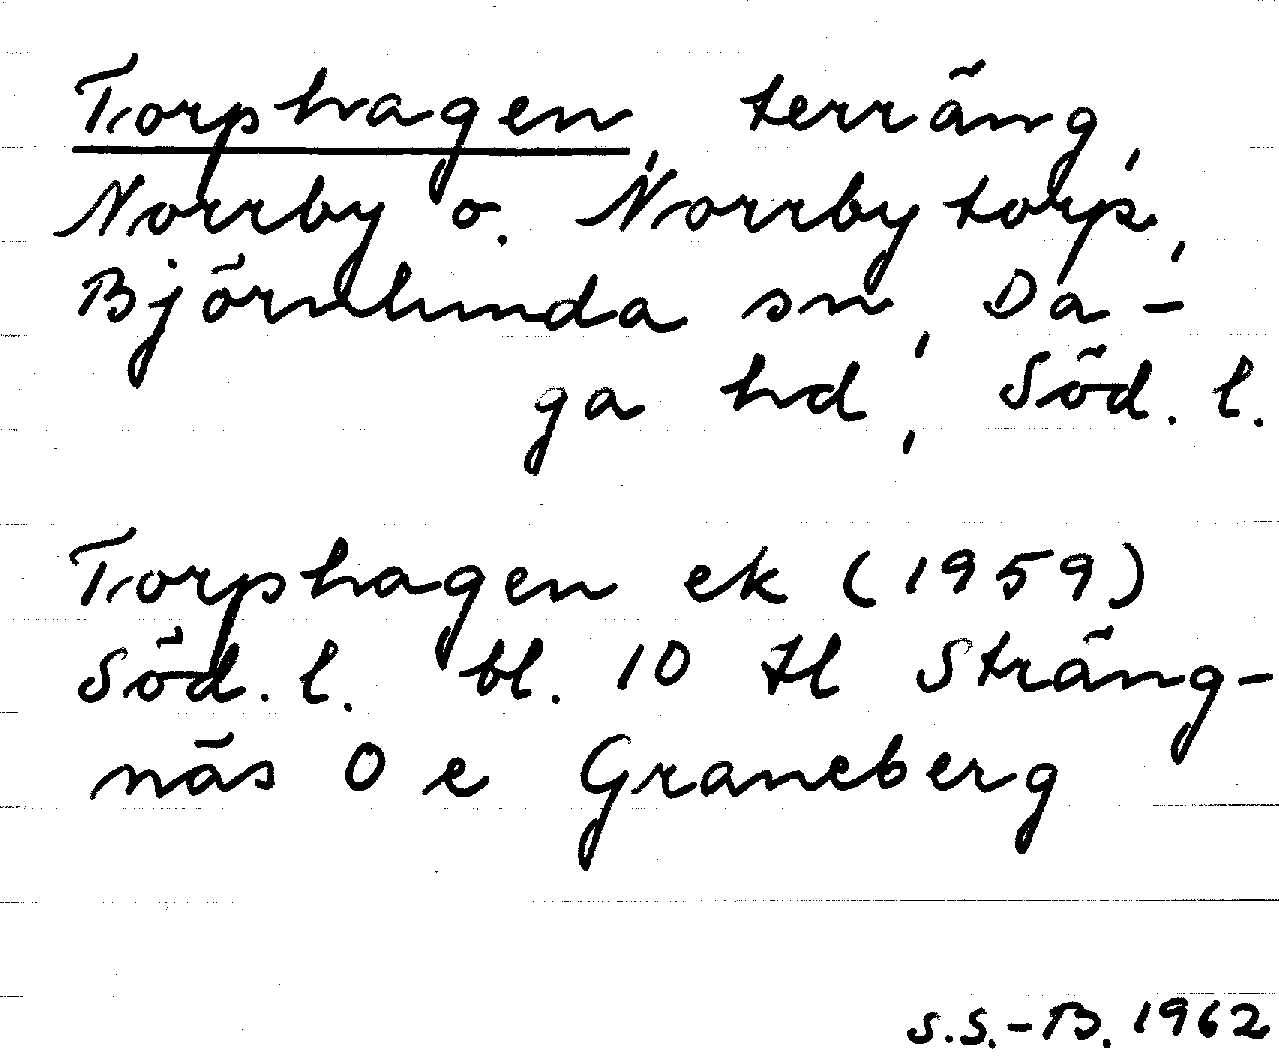 Torphagen, terräng,
Norrby o. Norrbytorp,
Björnlunda sn, Da-
ga hd, Söd. l.
Torphagen ek (1959)
Söd. l. bl. 10 tl Sträng-
näs O e Graneberg
S.S.-B. 1962